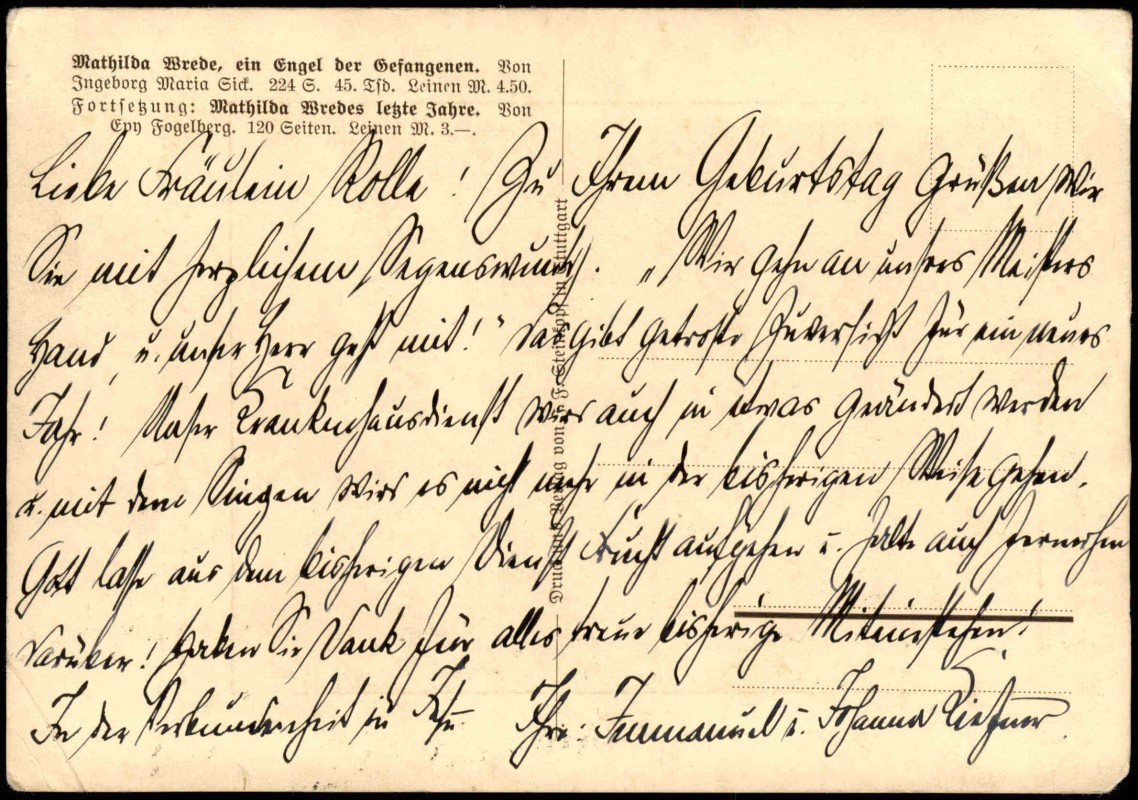 Mathilda Wrede, ein Engel der Gefangenen. Von
Ingeborg Maria Sick. 224 S. 45. Tsd. Leinen M. 4.50.
Fortsetzung: Mathilda Wredes letzte Jahre. Von
Evy Fogelberg. 120 Seiten. Leinen M. 3.—.
Liebe Fräulein Rolle! Zu Ihrem Geburtstag Grüßen wir
Sie mit herzlichem Segenswunsch. „Wir gehn an unsres Meisters
Hand, u. unser Herr geht mit!" Das gibt getroste Zuversicht für ein neues
Jahr! Unser Krankenhausdienst wird auch in etwas geändert werden
u. mit dem Singen wird es nicht mehr in der bisherigen Weise gehen.
Gott lasse aus dem bisherigen Dienst Frucht aufgehen u. halte auch fernerhin
darüber! Haben Sie Dank für alles treue bisherige
In der Verbundenheit in Jesu. Ihre: Immanuel u. Johanna
Druck und Verlag von J. F. Steinkopf in Stuttgart